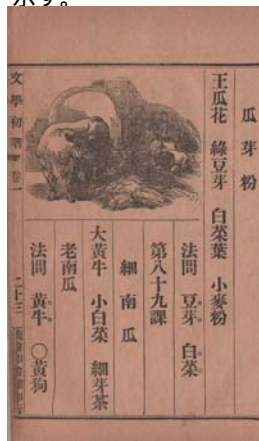 瓜 芽 粉
王瓜花 綠豆芽 白菜葉 小麥粉
法問 豆芽 白菜
第八十九課
細 南 瓜
大黃牛 小白菜 細芽茶
老南瓜
法問 黃牛 〇黃狗
文學初階 卷一 二十三